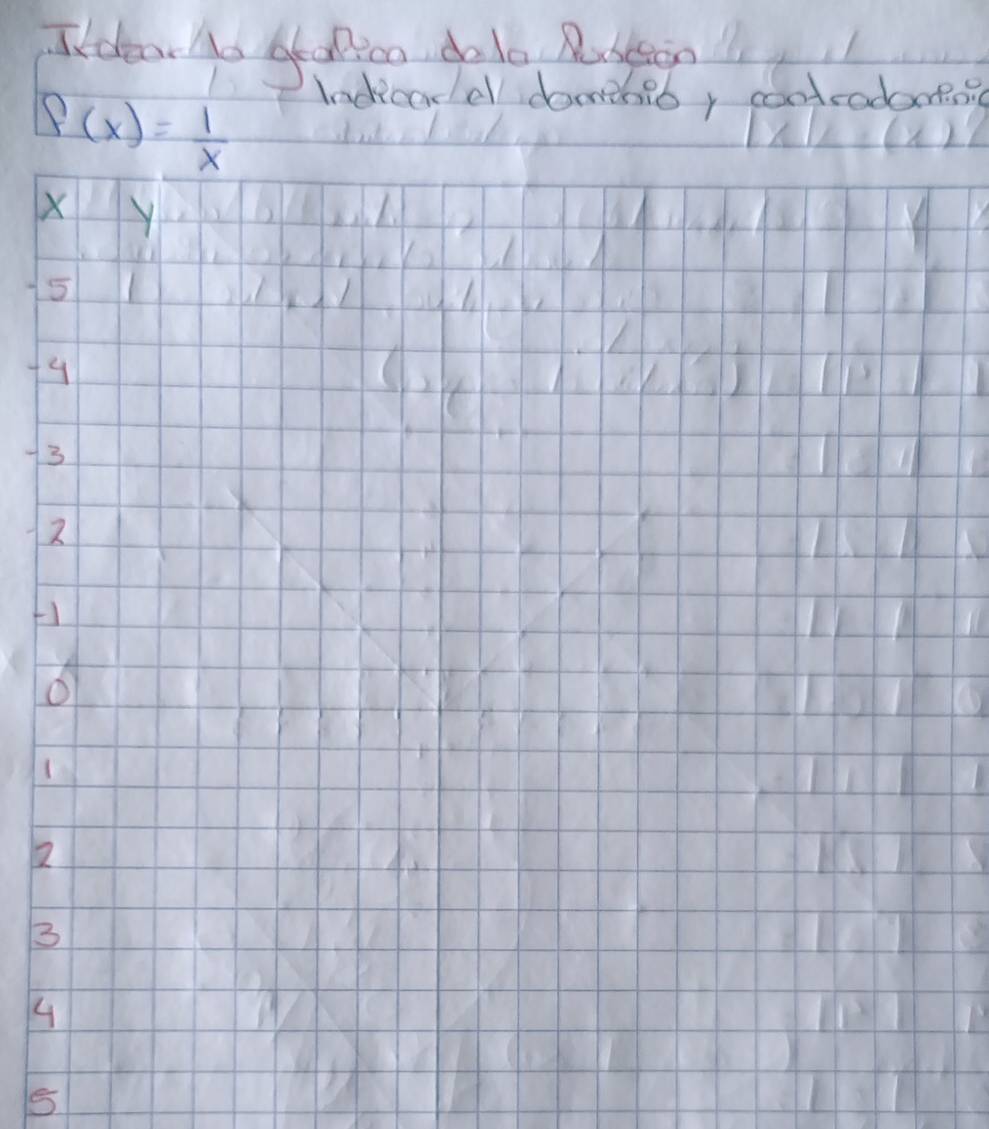 la grafica de la
Indicar el dominio y contradominio
f(x) = 1/x
x y
-5
-4
-3
-2
-1
0
1
2
3
4
5